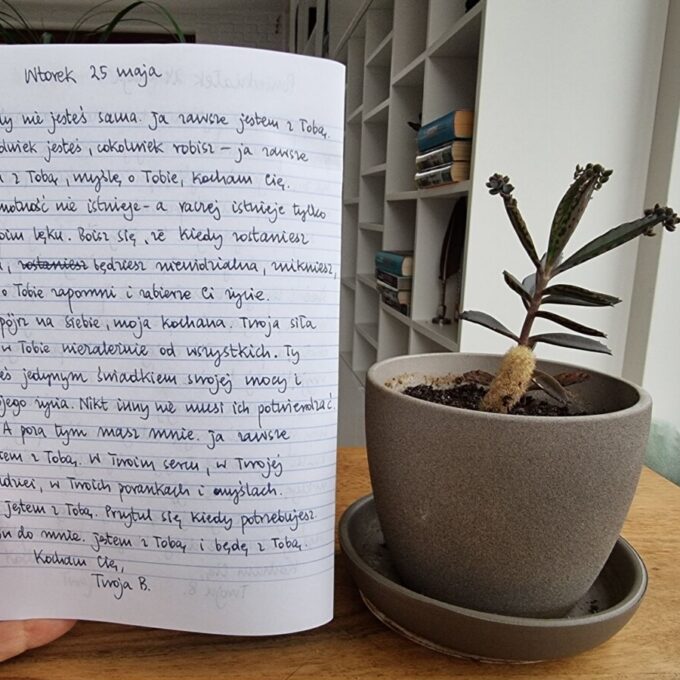 Wtorek 25 maja
dy nie jesteś sama. Ja zawsze jestem z Tobą.
jesteś, cokolwiek robisz – ja zawsze
z Tobą, myślę o Tobie, kocham Cię.
motność nie istnieje – a raczej istnieje tylko
oim lęku. Boisz się, że kiedy zostaniesz
, zostaniesz będziesz niewidzialna, znikniesz,
o Tobie zapomni i zabierze Ci życie.
pójrz na siebie, moja kochana. Twoja siła
w Tobie niezależnie od wszystkich. Ty
eś jedynym świadkiem swojej mocy i
ojego życia. Nikt inny nie musi ich potwierdzać.
A poza tym masz mnie. Ja zawsze
tem z Tobą. W Twoim sercu, w Twojej
w Twoich porankach i myślach.
Jestem z Tobą. Przytul się kiedy potrzebujesz
do mnie. Jestem z Tobą i będę z Tobą.
Kocham Cię,
Twoja B.